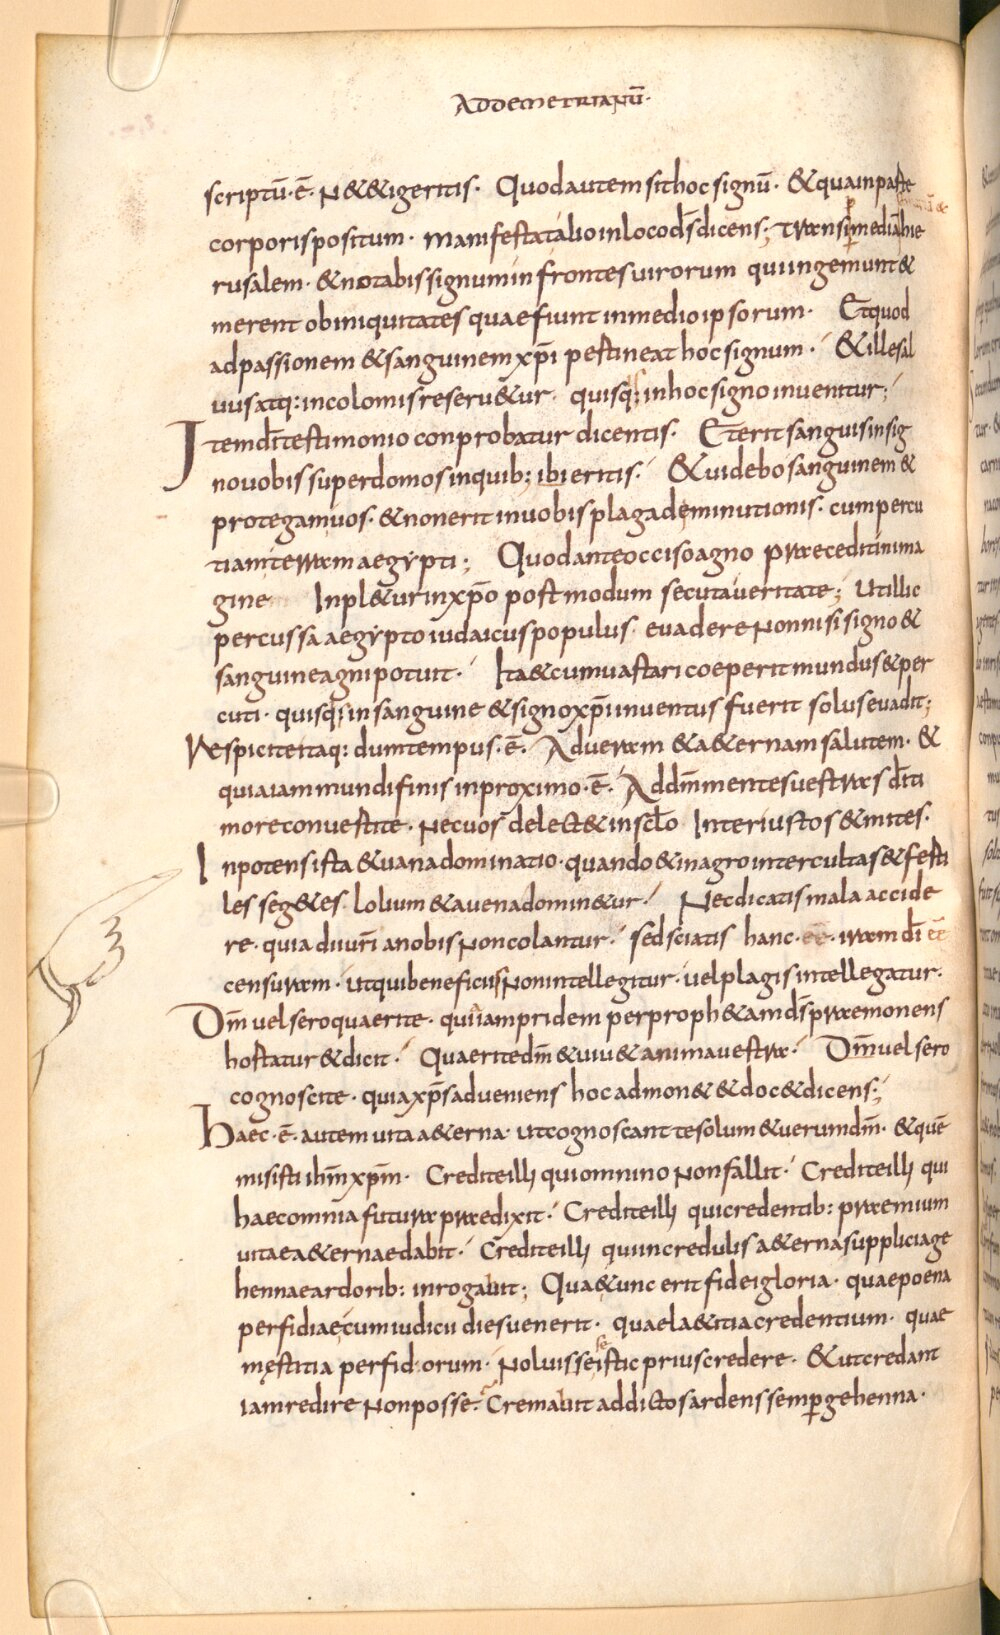 AD DEMETRIANŪ·
scriptū·ē· N& &igeritis· Quod autem sit hoc signū· & qua in parte
corporis positum· manifestat alio in loco d̄s dicens; Transi mediā hie
rusalem· & notabis signum in frontes uirorum qui ingemunt &
merent ob iniquitates quae fiunt in medio ipsorum· Et quod
ad passionem & sanguinem xp̄i pertineat hoc signum· & ille sal
uus atq: incolomis reseru&ur quisq; in hoc signo inuenitur;
Item d̄i testimonio conprobatur dicentis· Et erit sanguis in sig
no uobis super domos in quib; ibi eritis· & uidebo sanguinem &
protegam uos· & non erit in uobis plaga deminutionis· cum percu
tiam terram aegypti; Quod ante occiso agno praecedit in ima
gine Inpl&ur in xp̄o postmodum secuta ueritate; Ut illic
percussa aegypto iudaicus populus euadere non nisi signo &
sanguine agni potuit· Ita & cum uastari coeperit mundus & per
cuti· quisquis in sanguine & signo xp̄i inuentus fuerit solus euadit;
Respicite itaq: dum tempus·ē· Ad ueram & a&ernam salutem· &
quia iam mundi finis in proximo·ē· Ad dm̄ mentes uestras d̄i ti
more conuertite· Nec uos delect& in sc̄lo Inter iustos & mites·
Inpotens ista & uana dominatio· quando & in agro inter cultas & ferti
les seg&es lolium & auena domin&ur· Nec dicatis mala accide
re· quia dii ur̄i a nobis non colantur· sed sciatis hanc·ēē·iram d̄i ēē
censuram· ut qui beneficiis non intellegitur· uel plagis intellegatur·
Dm̄ uel sero quaerite· qui iam pridem per proph&am d̄s praemonens
hortatur & dicit· Quaerite dm̄ & uiu& anima uestra· Dm̄ uel sero
cognoscite· quia xp̄s adueniens hoc admon& & doc& dicens;
Haec·ē·autem uita a&erna· ut cognoscant te solum & uerum dm̄· & quē
misisti ihm̄ xpm̄· Credite illi qui omnino non fallit· Credite illi qui
haec omnia futura praedixit· Credite illi qui credentib: praemium
uitae a&ernae dabit· Credite illi qui incredulis a&erna supplicia ge
hennae ardorib: inrogabit; Quae tunc erit fidei gloria· quae poena
perfidiae cum iudicii dies uenerit· quae la&itia credentium· quae
męstitia perfidorum· Noluisse istic prius credere· & ut credant
iam redire non posse· Cremabit addictos ardens semper gehenna·